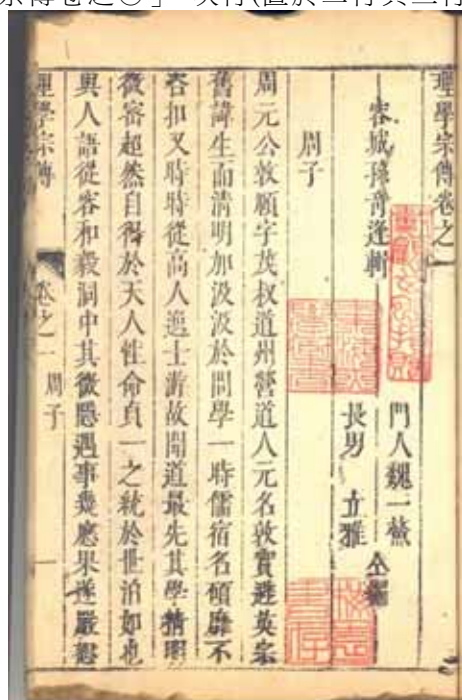 理學宗傳卷之一
容城孫奇逢輯
門人魏一鰲
長男 立雅 仝編
周子
周元公敦頤字茂叔道州營道人元名敦實避英宗
舊諱生而清明加汲汲於問學一時儒宿名碩靡不
咨扣又時時從高人逸士游故聞道最先其學精明
微密超然自得於天人性命貞一之統於世泊如也
與人語從容和毅洞中其微隱遇事幾應果遂嚴恕
理學宗傳
卷之一 周子
一